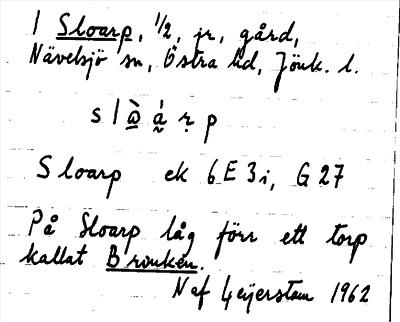 1 Sloarp, 1/2, jr, gård,
Nävelsjö sn, Östra hd, Jönk. l.
s l à̱ á̰ ṛ p
Sloarp ek 6E3i, G27
På Sloarp låg förr ett torp
kallat Brinken.
N af Geijerstam 1962